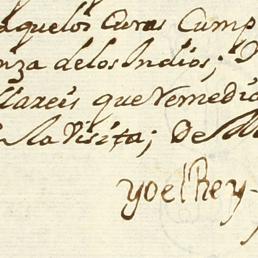 aquelos Curas Cump
nza delos Indios; D
llareis que Remedia
la Visita; De M
yo el Rey